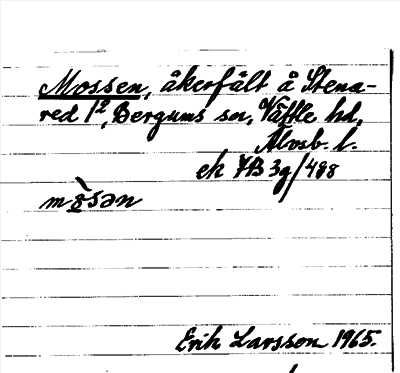 Mossen, åkerfält å Stena-
red 1², Bergums sn, Vättle hd,
Älvsb. l.
ek 7B 3g/488
mòsən
Erik Larsson 1965.